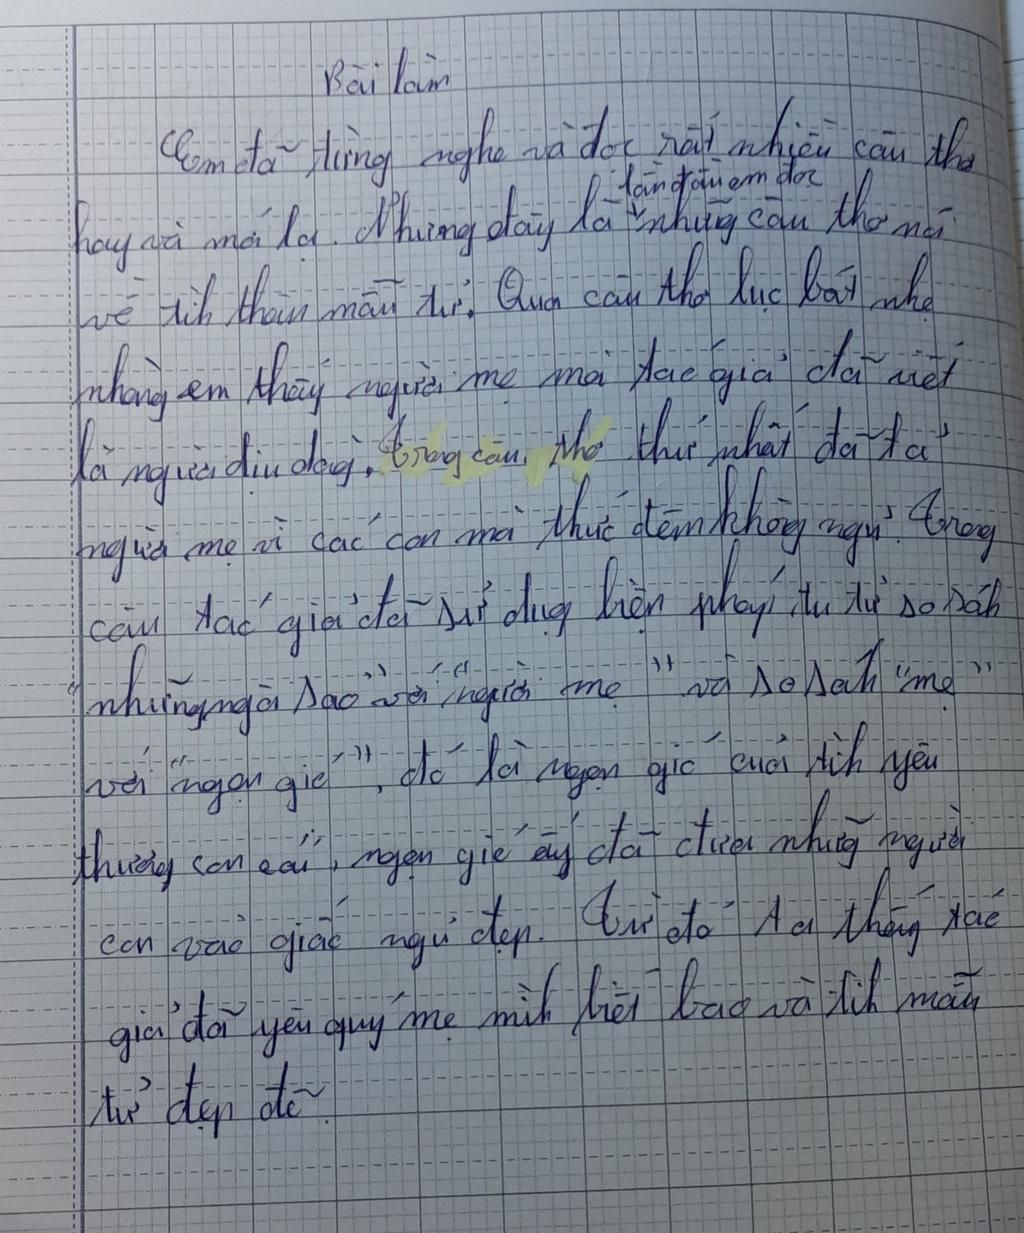 Bài làm
Em đã từng nghe và đọc rất nhiều câu thơ
lần đầu em đọc
hay và mới lạ. Nhưng đây là những câu thơ nói
về tìh thân mẫu tử. Qua câu thơ lục bát nhẹ
nhàng em thấy người mẹ mà tác giả đã viết
là người dịu dàng, trong câu thơ thứ nhất đã tả
người mẹ vì các con mà thức đêm không ngủ. Trong
câu tác giả đã sử dụg biện pháp tu từ so sáh
"những ngôi sao" với "người mẹ" và so sáh "mẹ"
với "ngọn gió", đó là ngọn gió của tìh yêu
thương con cái, ngọn gió ấy đã đưa những người
con vào giấc ngủ đẹp. Từ đó ta thấy tác
giả đã yêu quý mẹ mìh biết bao và tìh mẫu
tử đẹp đẽ.